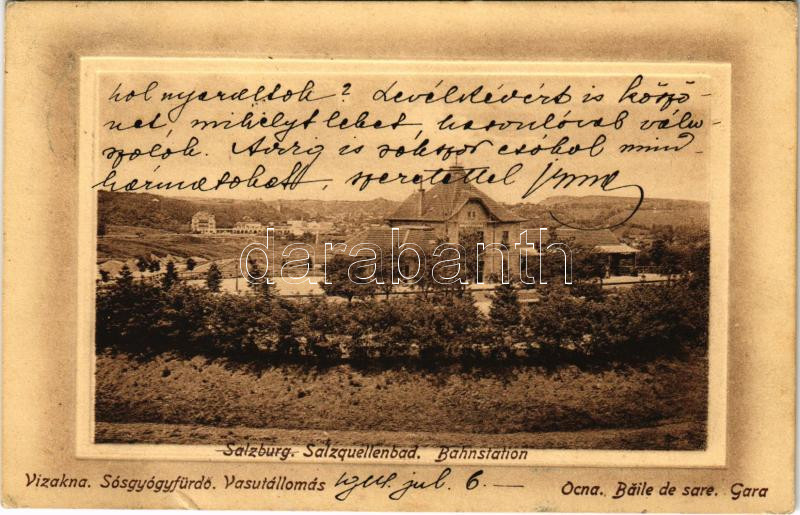 hol nyaraltok? Levélkédért is köszö-
net, mihelyt lehet hasonlóval vála-
szolok. Addig is sokszor csókol mind-
hármatokat, szeretettel Irma
darabanth
Salzburg. Salzquellenbad. Bahnstation
Vizakna. Sósgyógyfürdő. Vasutállomás 1911. jul. 6.— Ocna. Băile de sare. Gara